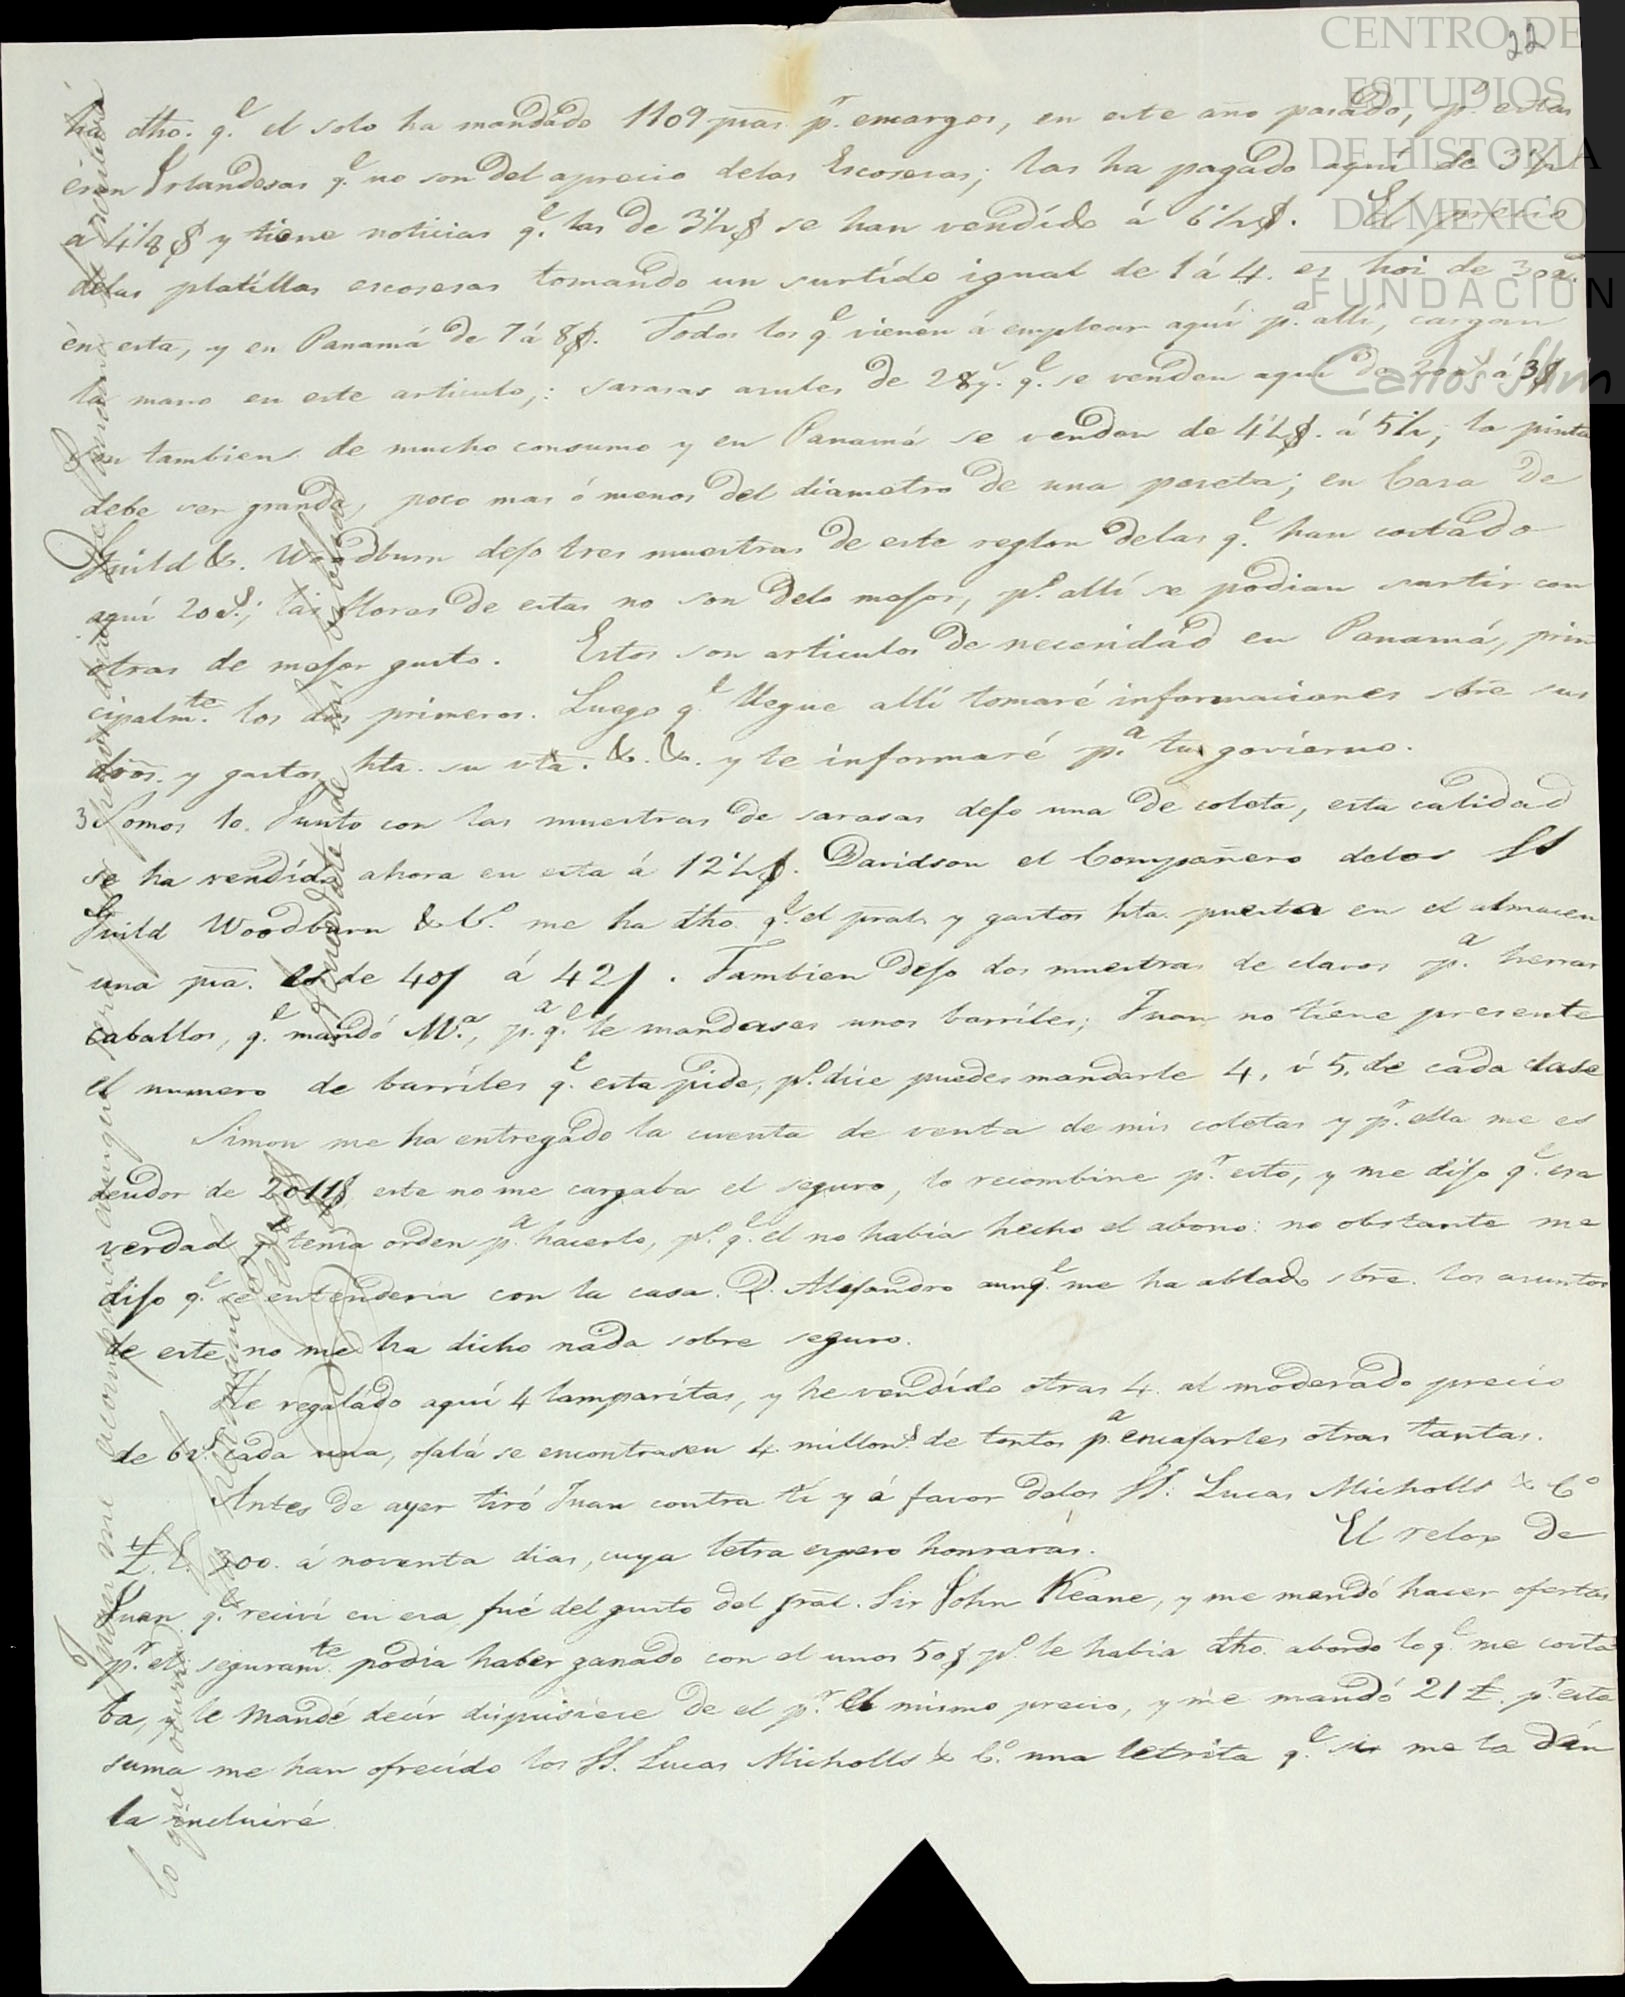 22
CENTRO DE
ESTUDIOS
DE HISTORIA
DE MEXICO
FUNDACIÓN
Carlos Slim
ha dho. q.e el solo ha mandado 1109 pzas. p.r encargos, en este año pasado, p.o estas
eran Irlandesas q.e no son del aprecio delas Escosesas; las ha pagado aquí de 3 1/2
a 4 1/8 $ y tiene noticias q.e las de 3 1/2 $ se han vendído á 6 1/2 $. El precio
delas platíllas escosesas tomando un surtído igual de 1 á 4. es hoi de
én esta, y en Panamá de 7 á 8 $. Todos los q.e vienen á emplear aquí p.a allí, cargan
la mano en este articulo,: sarasas asules de 28 y.s q.e se venden aquí de á 3 $
son tambien de mucho consumo y en Panamá se venden de 4 1/2 $. á 5 1/2; la pinta
debe ser grande, poco mas ó menos del diametro de una peseta; en Casa de
Guild &. Woodburn dejo tres muestras de este reglon delas q.e han costado
aquí 20 r.s; las flores de estas no son delo mejor, p.o allí se podian surtir con
otras de mejor gusto. Estos son articulos de necesidad en Panamá, prin
cipalm.te los dos primeros. Luego q.e llegue allí tomaré informaciones sbre sus
dros. y gastos hta. su vta. &. &. y te informaré p.a tu govierno.
3 Somos 10. Junto con las muestras de sarasas dejo una de coleta, esta calidad
se ha vendído ahora en esta á 12 1/2 $. Davidson el Compañero delos SS
Guild Woodburn & C.o me ha dho q.e el pral. y gastos hta. puesta en el almacen
una pza. es de 40/ á 42/. Tambien dejo dos muestras de clavos p.a herrar
caballos, q.e mandó M.a, p.a q.e le mandases unos barríles; Juan no tiene presente
el numero de barríles q.e esta pide, p.o dice puedes mandarle 4, ó 5, de cada clase
Simon me ha entregado la cuenta de venta de mis coletas y p.r ella me es
deudor de 2011 $ este no me cargaba el seguro, lo recombine p.r esto, y me dijo q.e era
verdad q.e tenía orden p.a hacerlo, p.o q.e el no habia hecho el abono: no obstante me
dijo q.e se entendería con la casa. D. Alejandro aunq.e me ha ablado sbre. los asuntos
de este no me ha dicho nada sobre seguro.
He regalado aquí 4 lamparítas, y he vendído otras 4. al moderado precio
de 6 r.s cada una, ojalá se encontrasen 4. millon.s de tontos p.a encajarles otras tantas.
Antes de ayer tiró Juan contra tí y á favor delos SS. Lucas Micholls & C.o
£. E. 300. á noventa dias, cuya letra espero honrarás. El relox de
Juan q.e reciví en esa fué del gusto del gral. Sir John Keane, y me mandó hacer ofertas
p.r el: seguram.te podía haber ganado con el unos 50 $ p.o le habia dho. abordo lo q.e me costa
ba, y le mandé decir dispusiese de el p.r el mismo precio, y me mandó 21 £. p.r esta
suma me han ofrecído los SS. Lucas Micholls & C.o una letrita q.e si me la dán
la incluiré